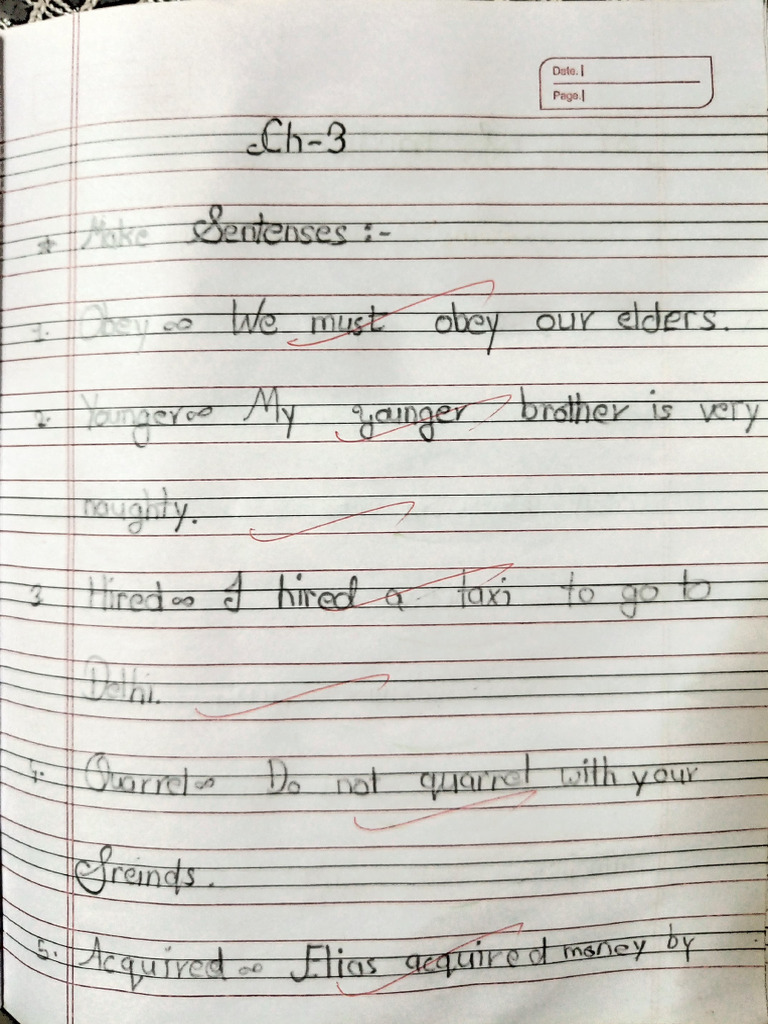 Date.
Page.
Ch-3
* Make Sentenses :-
1. Obey ∞ We must obey our elders.
2. Younger ∞ My younger brother is very
naughty.
3 Hired ∞ I hired a taxi to go to
Delhi.
4. Quarrel ∞ Do not quarrel with your
freinds.
5. Acquired ∞ Elias acquired money by